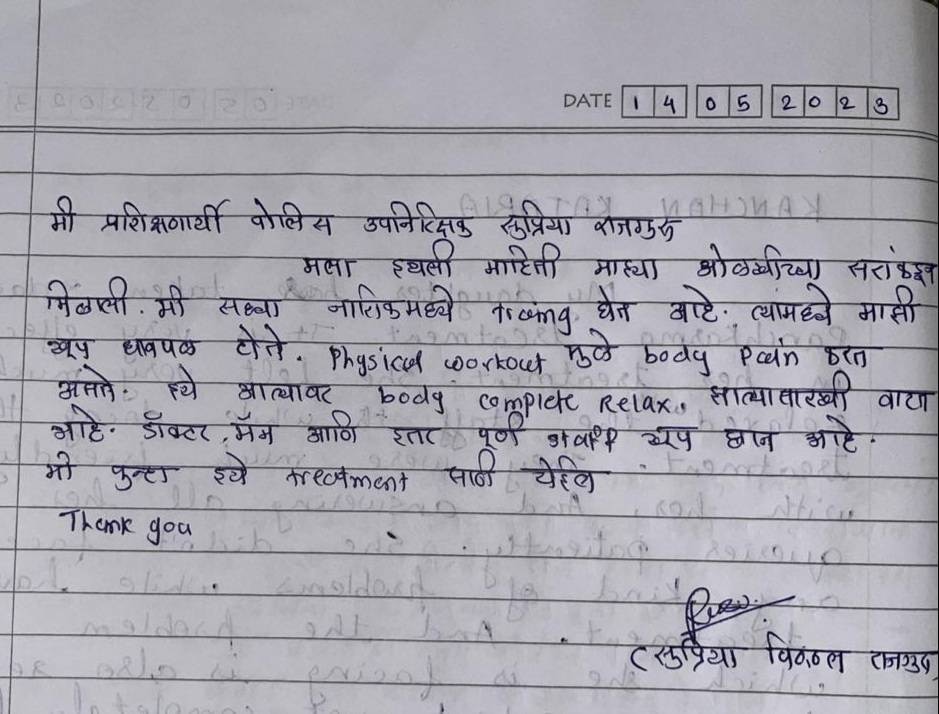 DATE 14 05 2023
मी प्रशिक्षणार्थी पोलिस उपनिरिक्षक सुप्रिया राजगुरु
मला इथली माहिती माझ्या ओळखीच्या सरांकडून
मिळाली. मी सध्या नाशिकमध्ये traing घेत आहे. त्यामध्ये माझी
खूप धावपळ होते. Physical workout मुळे body pain करत
असते. इथे आल्यावर body complete Relax झाल्यासारखी वाटत
आहे. डॉक्टर मॅम आणि इतर पूर्ण staff खूप छान आहे.
मी पुन्हा इथे treatment साठी येईल
Thank you
सुप्रिया विठ्ठल राजगुरु